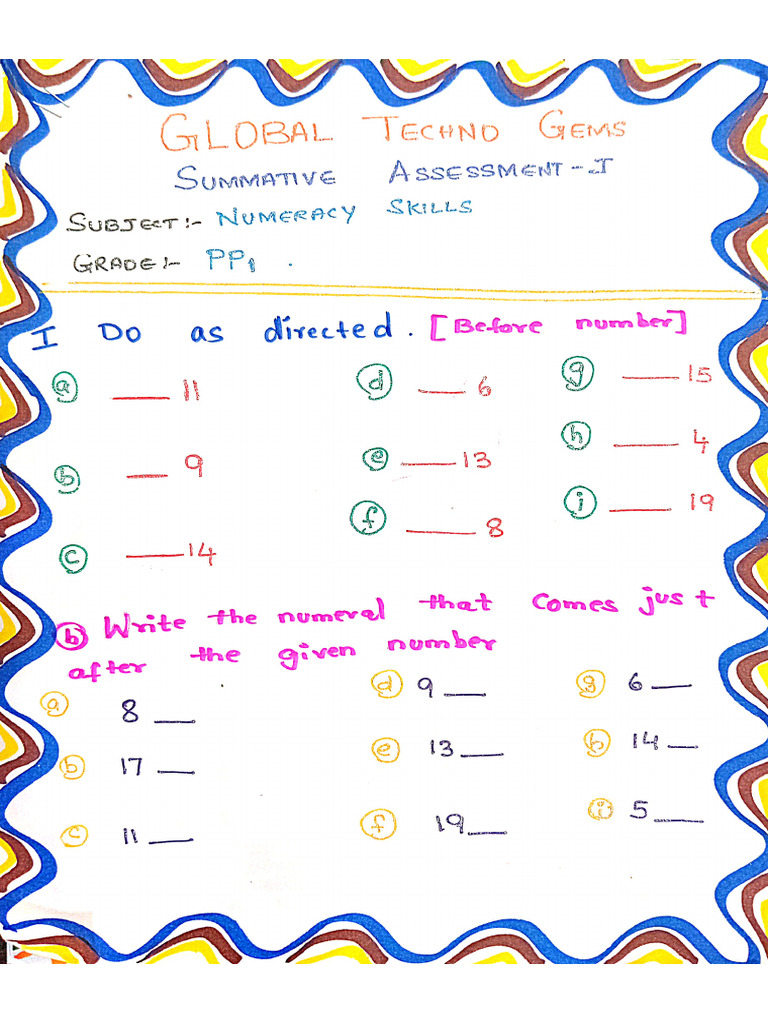 GLOBAL TECHNO GEMS
SUMMATIVE ASSESSMENT-I
SUBJECT:- NUMERACY SKILLS
GRADE:- PP1 .
I Do as directed. [Before number]
a ___ 11 d ___ 6 g ___ 15
b ___ 9 e ___ 13 h ___ 4
c ___ 14 f ___ 8 i ___ 19
b Write the numeral that comes just
after the given number
a 8 ___ d 9 ___ g 6 ___
b 17 ___ e 13 ___ h 14 ___
c 11 ___ f 19 ___ i 5 ___